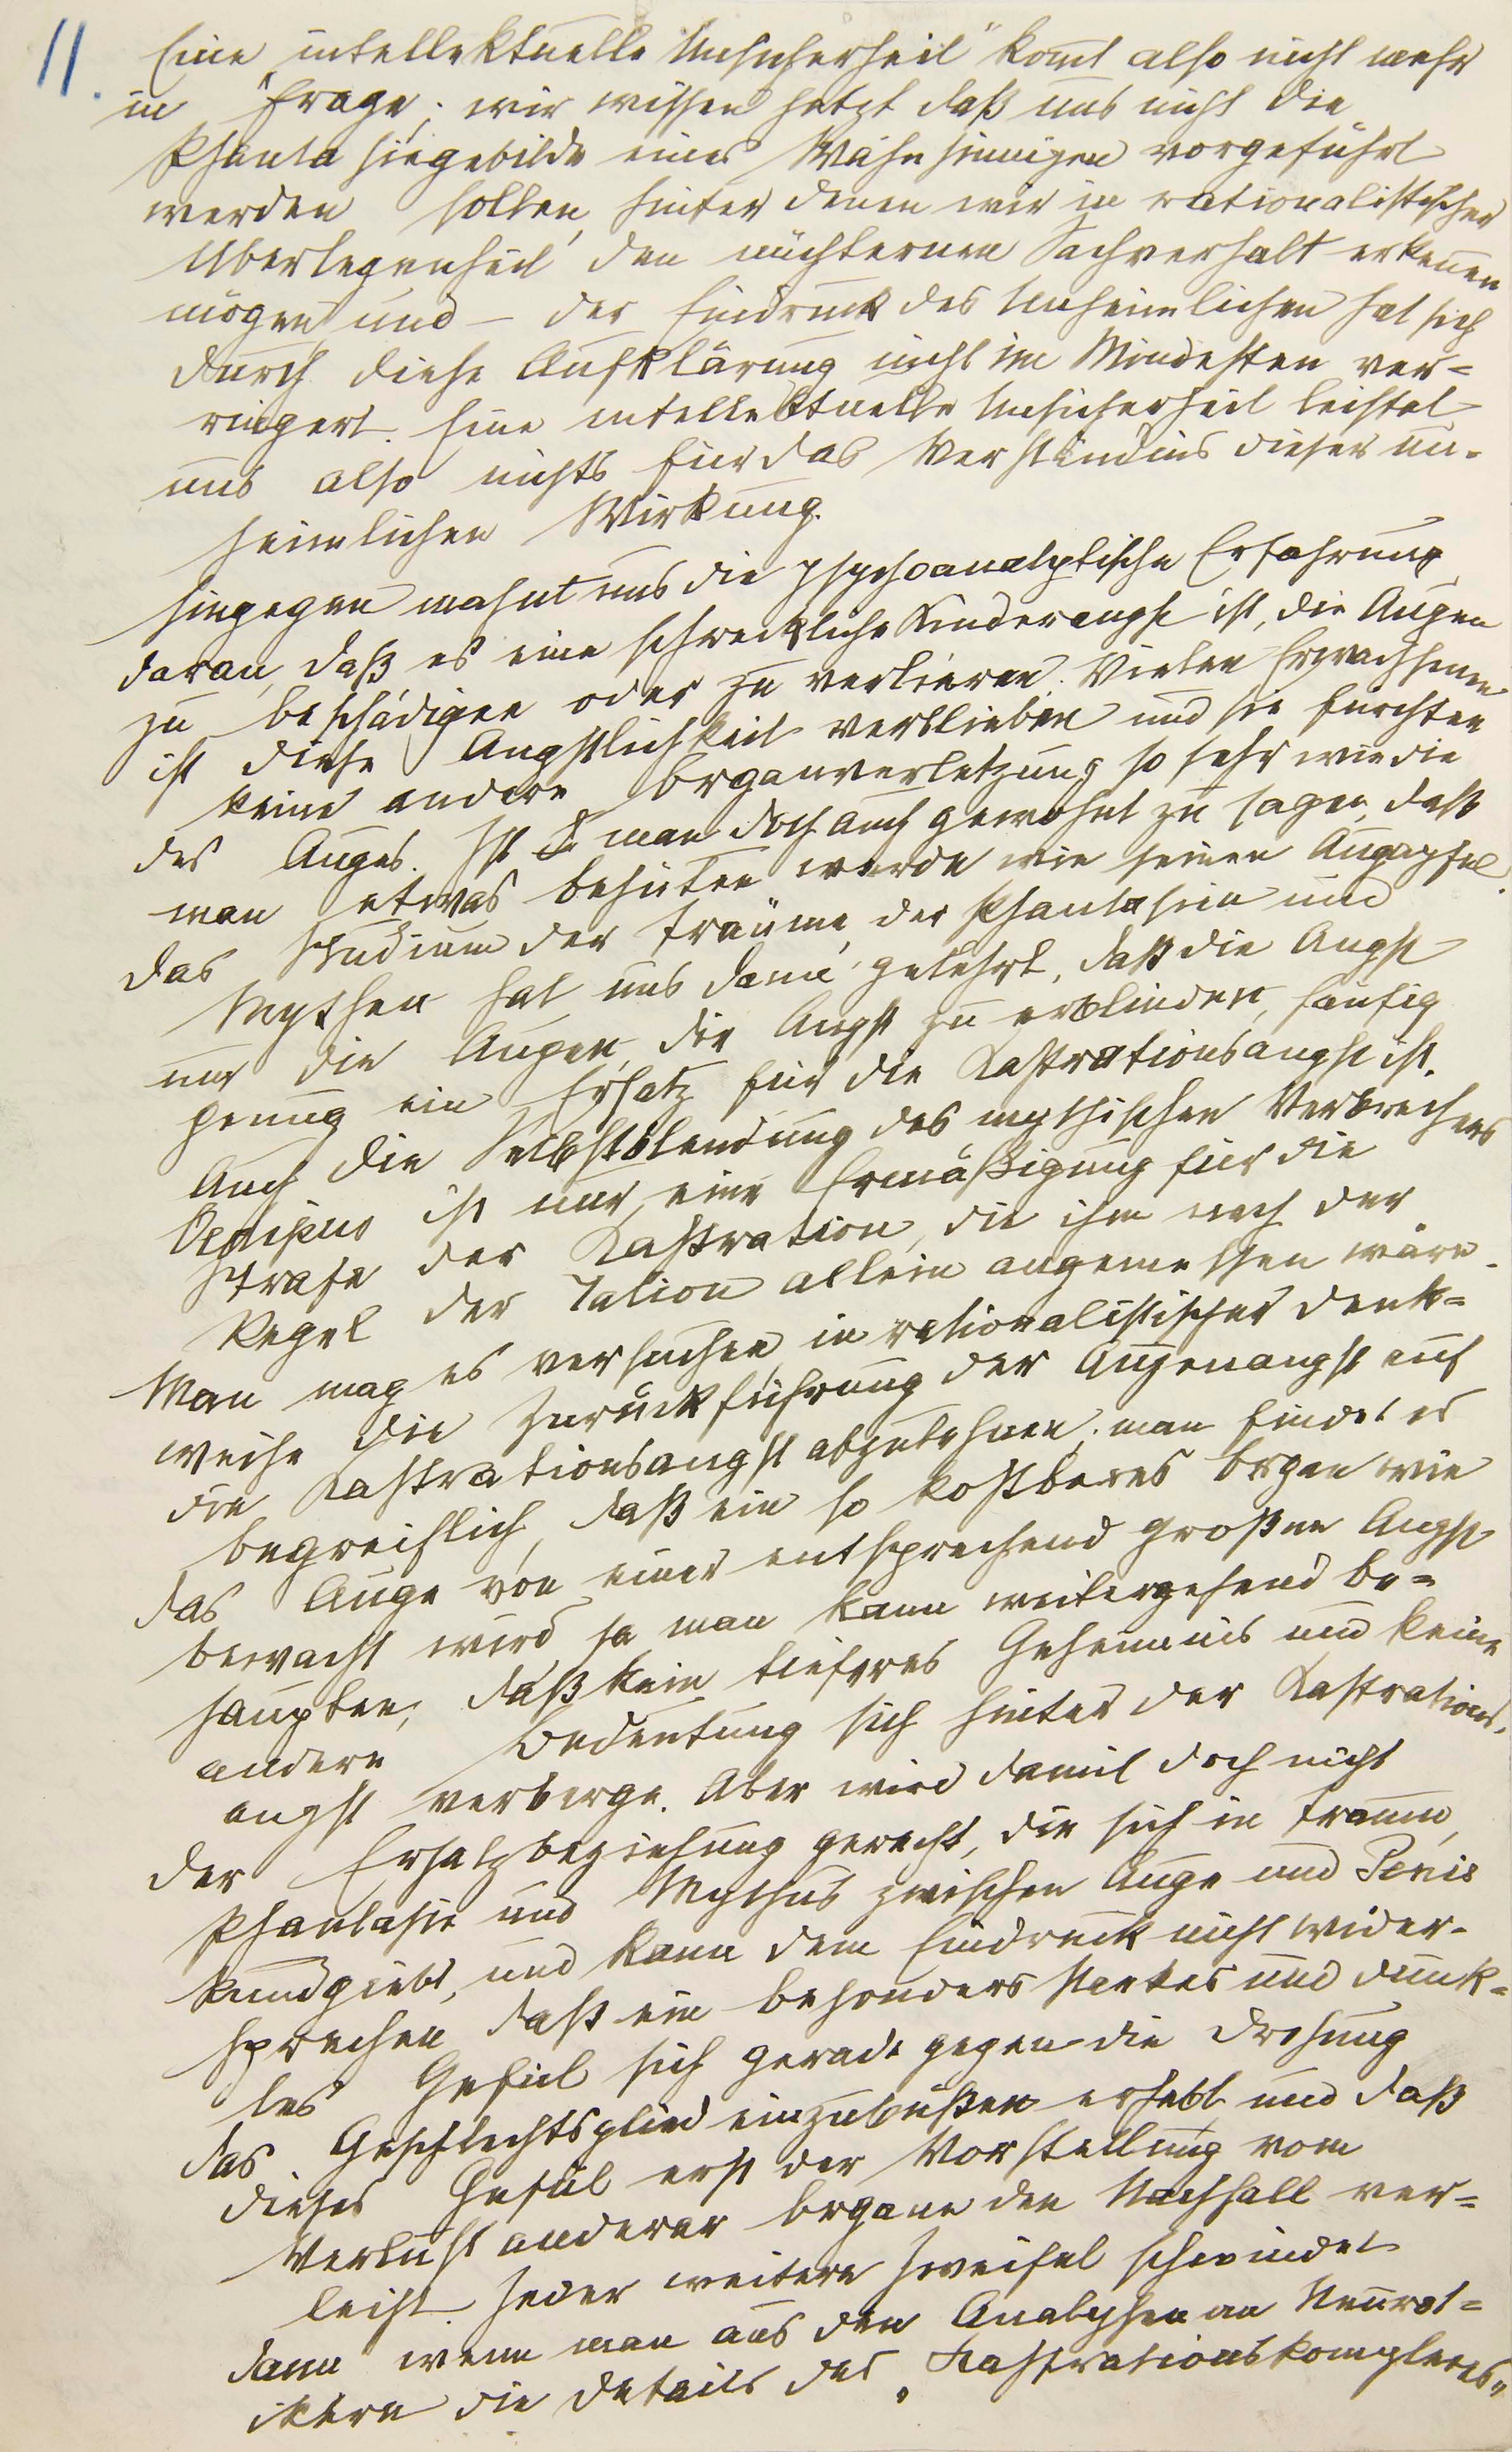 11.
Eine „intellektuelle Unsicherheit" komt also nicht mehr
in Frage; wir wissen jetzt daß uns nicht die
Phantasiegebilde eines Wahnsinnigen vorgeführt
werden sollen, hinter denen wir in rationalistischer
Überlegenheit den nüchternen Sachverhalt erkennen
mögen, und – der Eindruck des Unheimlichen hat sich
durch diese Aufklärung nicht im Mindesten ver=
ringert. Eine intellektuelle Unsicherheit leistet
uns also nichts für das Verständnis dieser un-
heimlichen Wirkung.
Hingegen mahnt uns die psychoanalytische Erfahrung
daran, daß es eine schreckliche Kinderangst ist, die Augen
zu beschädigen oder zu verlieren. Vielen Erwachsenen
ist diese Ängstlichkeit verblieben und sie fürchten
keine andere Organverletzung so sehr wie die
des Auges. Ist man doch auch gewohnt zu sagen, daß
man etwas behüten werde wie seinen Augapfel.
Das Studium der Träume, der Phantasien und
Mythen hat uns dann gelehrt, daß die Angst
um die Augen, die Angst zu erblinden, häufig
genug ein Ersatz für die Kastrationsangst ist.
Auch die Selbstblendung des mythischen Verbrechers
Oedipus ist nur eine Ermäßigung für die
Strafe der Kastration, die ihm nach der
Regel der Talion allein angemessen wäre.
Man mag es versuchen, in rationalistischer Denk=
weise die Zurückführung der Augenangst auf
die Kastrationsangst abzulehnen; man findet es
begreiflich, daß ein so kostbares Organ wie
das Auge von einer entsprechend großen Angst
bewacht wird, ja man kann weitergehend be=
haupten, daß kein tieferes Geheimnis und keine
andere Bedeutung sich hinter der Kastrations-
angst verberge. Aber wird damit doch nicht
der Ersatzbeziehung gerecht, die sich in Traum,
Phantasie und Mythus zwischen Auge und Penis
kundgiebt, und kann dem Eindruck nicht wider-
sprechen, daß ein besonders starkes und dunk=
les Gefül sich gerade gegen die Drohung
das Geschlechtsglied einzubüßen erhebt und daß
dieses Gefül erst der Vorstellung vom
Verlust anderer Organe den Nachhall ver=
leiht. Jeder weitere Zweifel schwindet
dann wenn man aus den Analysen an Neurot=
ikern die Details des „Kastrationskomplexes"